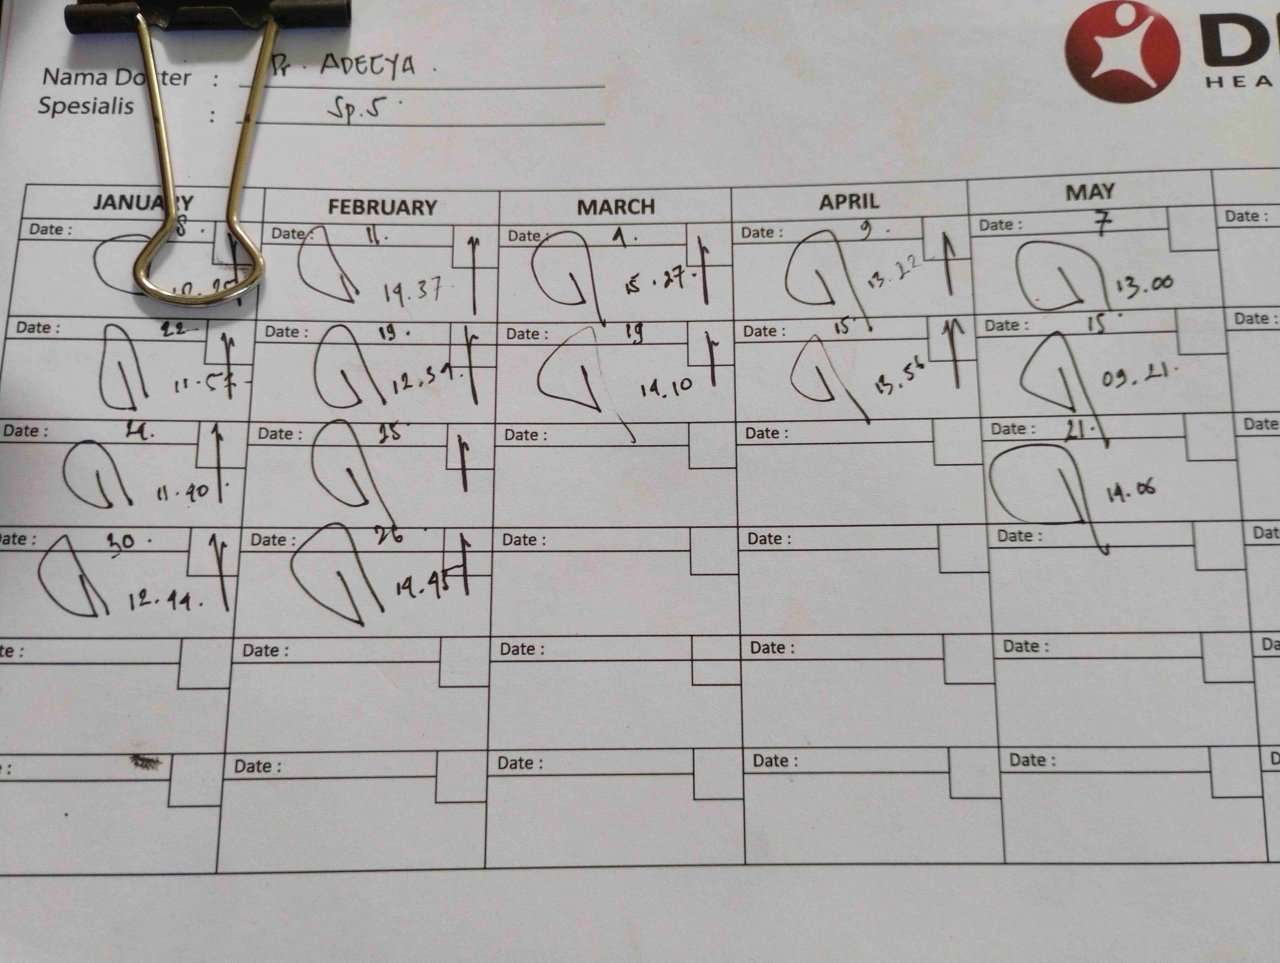 Nama Dokter : Dr. ADEEYA.
Spesialis : Sp.S.
HEA
JANUARY FEBRUARY MARCH APRIL MAY
Date : 8. Date : 11. Date : 1. Date : 9. Date : 7 Date :
19.37 15.27 13.22 13.00
Date : 22 Date : 19. Date : 19 Date : 15 Date : 15 Date :
11.57 12.39. 14.10 13.56 09.21.
Date : Date : 25 Date : Date : Date : 21. Date
11.40 14.06
ate : 30. Date : 26 Date : Date : Date : Dat
12.44. 14.45
te : Date : Date : Date : Date : Da
: Date : Date : Date : Date : D